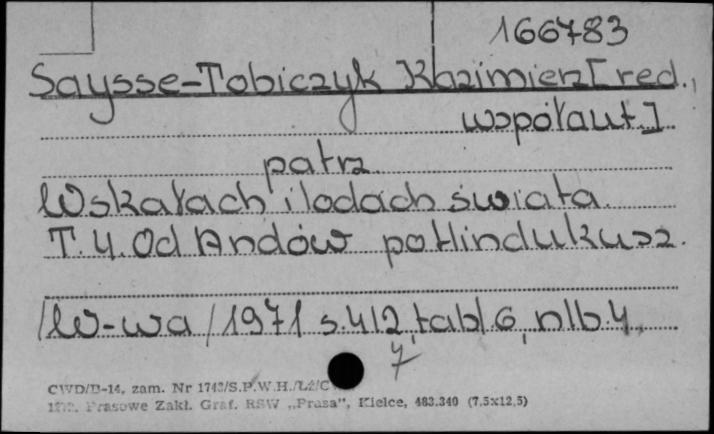 166783
Saysse-Tobiczyk Kazimierz [red.,
współaut.].
patrz
W skałach i lodach świata.
T. 4. Od Andów po Hindukusz.
/W-wa/ 1971 s. 412, tabl. 6, nlb. 4.
7
CWD/B-14, zam. Nr 1743/S.P.W.H.
Prasowe Zakł. Graf. RSW „Prasa”, Kielce, 483.340 (7,5x12,5)